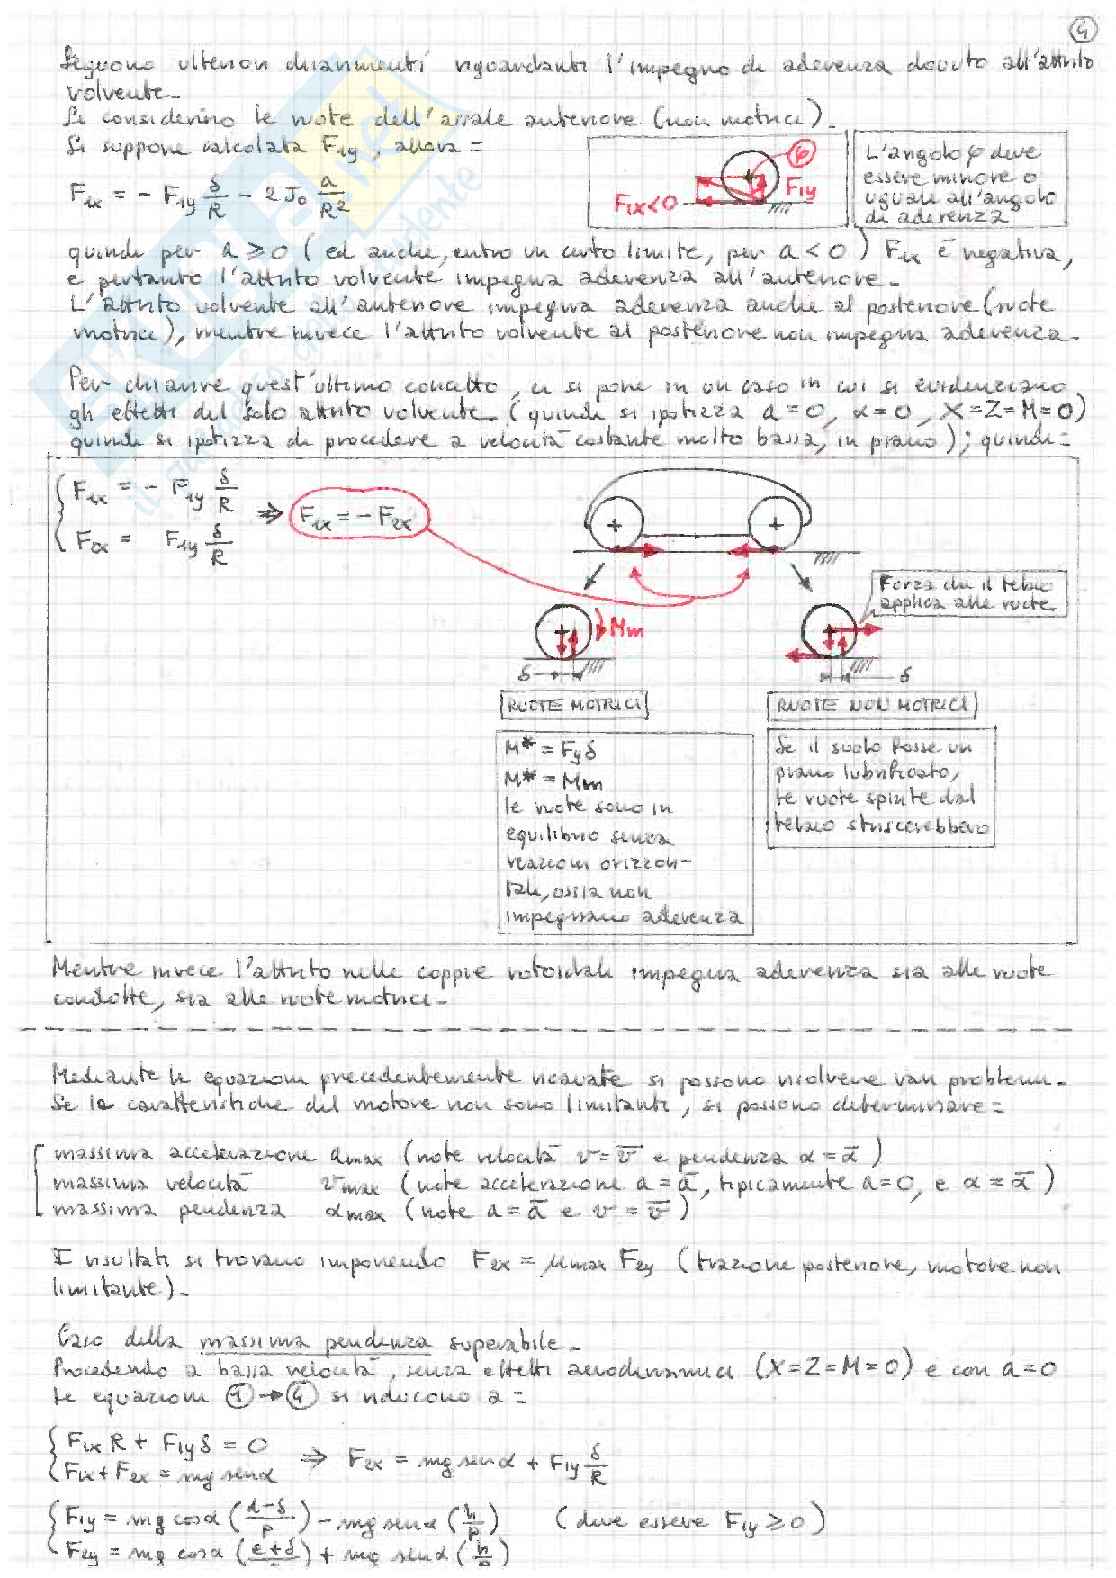 4
Seguono ulteriori chiarimenti riguardanti l'impegno di aderenza dovuto all'attrito
volvente.
Si considerino le ruote dell'assale anteriore (non motrici).
Si suppone calcolata F1y, allora:
F1x = - F1y δ/R - 2 J0 a/R²
F1x<0
φ
F1y
L'angolo φ deve
essere minore o
uguale all'angolo
di aderenza
quindi per a ≥ 0 (ed anche, entro un certo limite, per a < 0) F1x è negativa,
e pertanto l'attrito volvente impegna aderenza all'anteriore.
L'attrito volvente all'anteriore impegna aderenza anche al posteriore (ruote
motrici), mentre invece l'attrito volvente al posteriore non impegna aderenza.
Per chiarire quest'ultimo concetto, ci si pone in un caso in cui si evidenziano
gli effetti del solo attrito volvente. (quindi si ipotizza a=0, α=0, X=Z=M=0)
quindi si ipotizza di procedere a velocità costante molto bassa, in piano); quindi:
F1x = - F1y δ/R
F2x = F1y δ/R
⇒ F1x = - F2x
Forza che il telaio
applica alle ruote
Mm
δ
δ
RUOTE MOTRICI
RUOTE NON MOTRICI
M* = Fy δ
M* = Mm
le ruote sono in
equilibrio senza
reazioni orizzon-
tali, ossia non
impegnano aderenza
Se il suolo fosse un
piano lubrificato,
le ruote spinte dal
telaio striscerebbero
Mentre invece l'attrito nelle coppie rotoidali impegna aderenza sia alle ruote
condotte, sia alle ruote motrici.
Mediante le equazioni precedentemente ricavate si possono risolvere vari problemi.
Se le caratteristiche del motore non sono limitanti, si possono determinare:
massima accelerazione amax (note velocità v = v̄ e pendenza α = ᾱ)
massima velocità vmax (note accelerazione a = ā, tipicamente a=0, e α = ᾱ)
massima pendenza αmax (note a = ā e v = v̄)
I risultati si trovano imponendo F2x = μmax F2y (trazione posteriore, motore non
limitante).
Caso della massima pendenza superabile.
Procedendo a bassa velocità, senza effetti aerodinamici (X=Z=M=0) e con a=0
le equazioni ① → ④ si riducono a:
F1x R + F1y δ = 0
F1x + F2x = mg sen α
⇒ F2x = mg sen α + F1y δ/R
F1y = mg cos α (d-δ/p) - mg sen α (h/p) (deve essere F1y ≥ 0)
F2y = mg cos α (e+δ/p) + mg sen α (h/p)